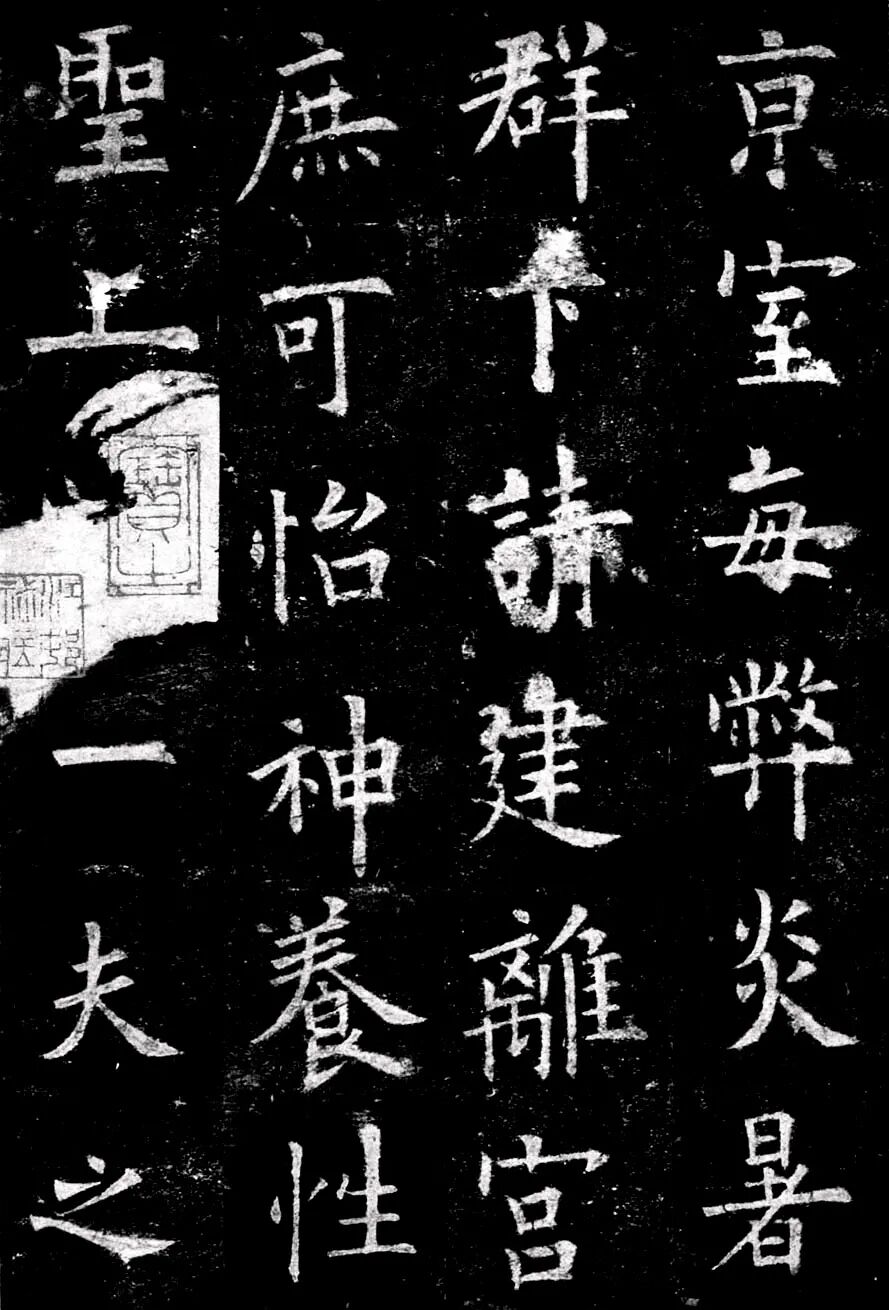 亰室每弊炎暑
群下請建離宫
庶可怡神養性
聖上一夫之